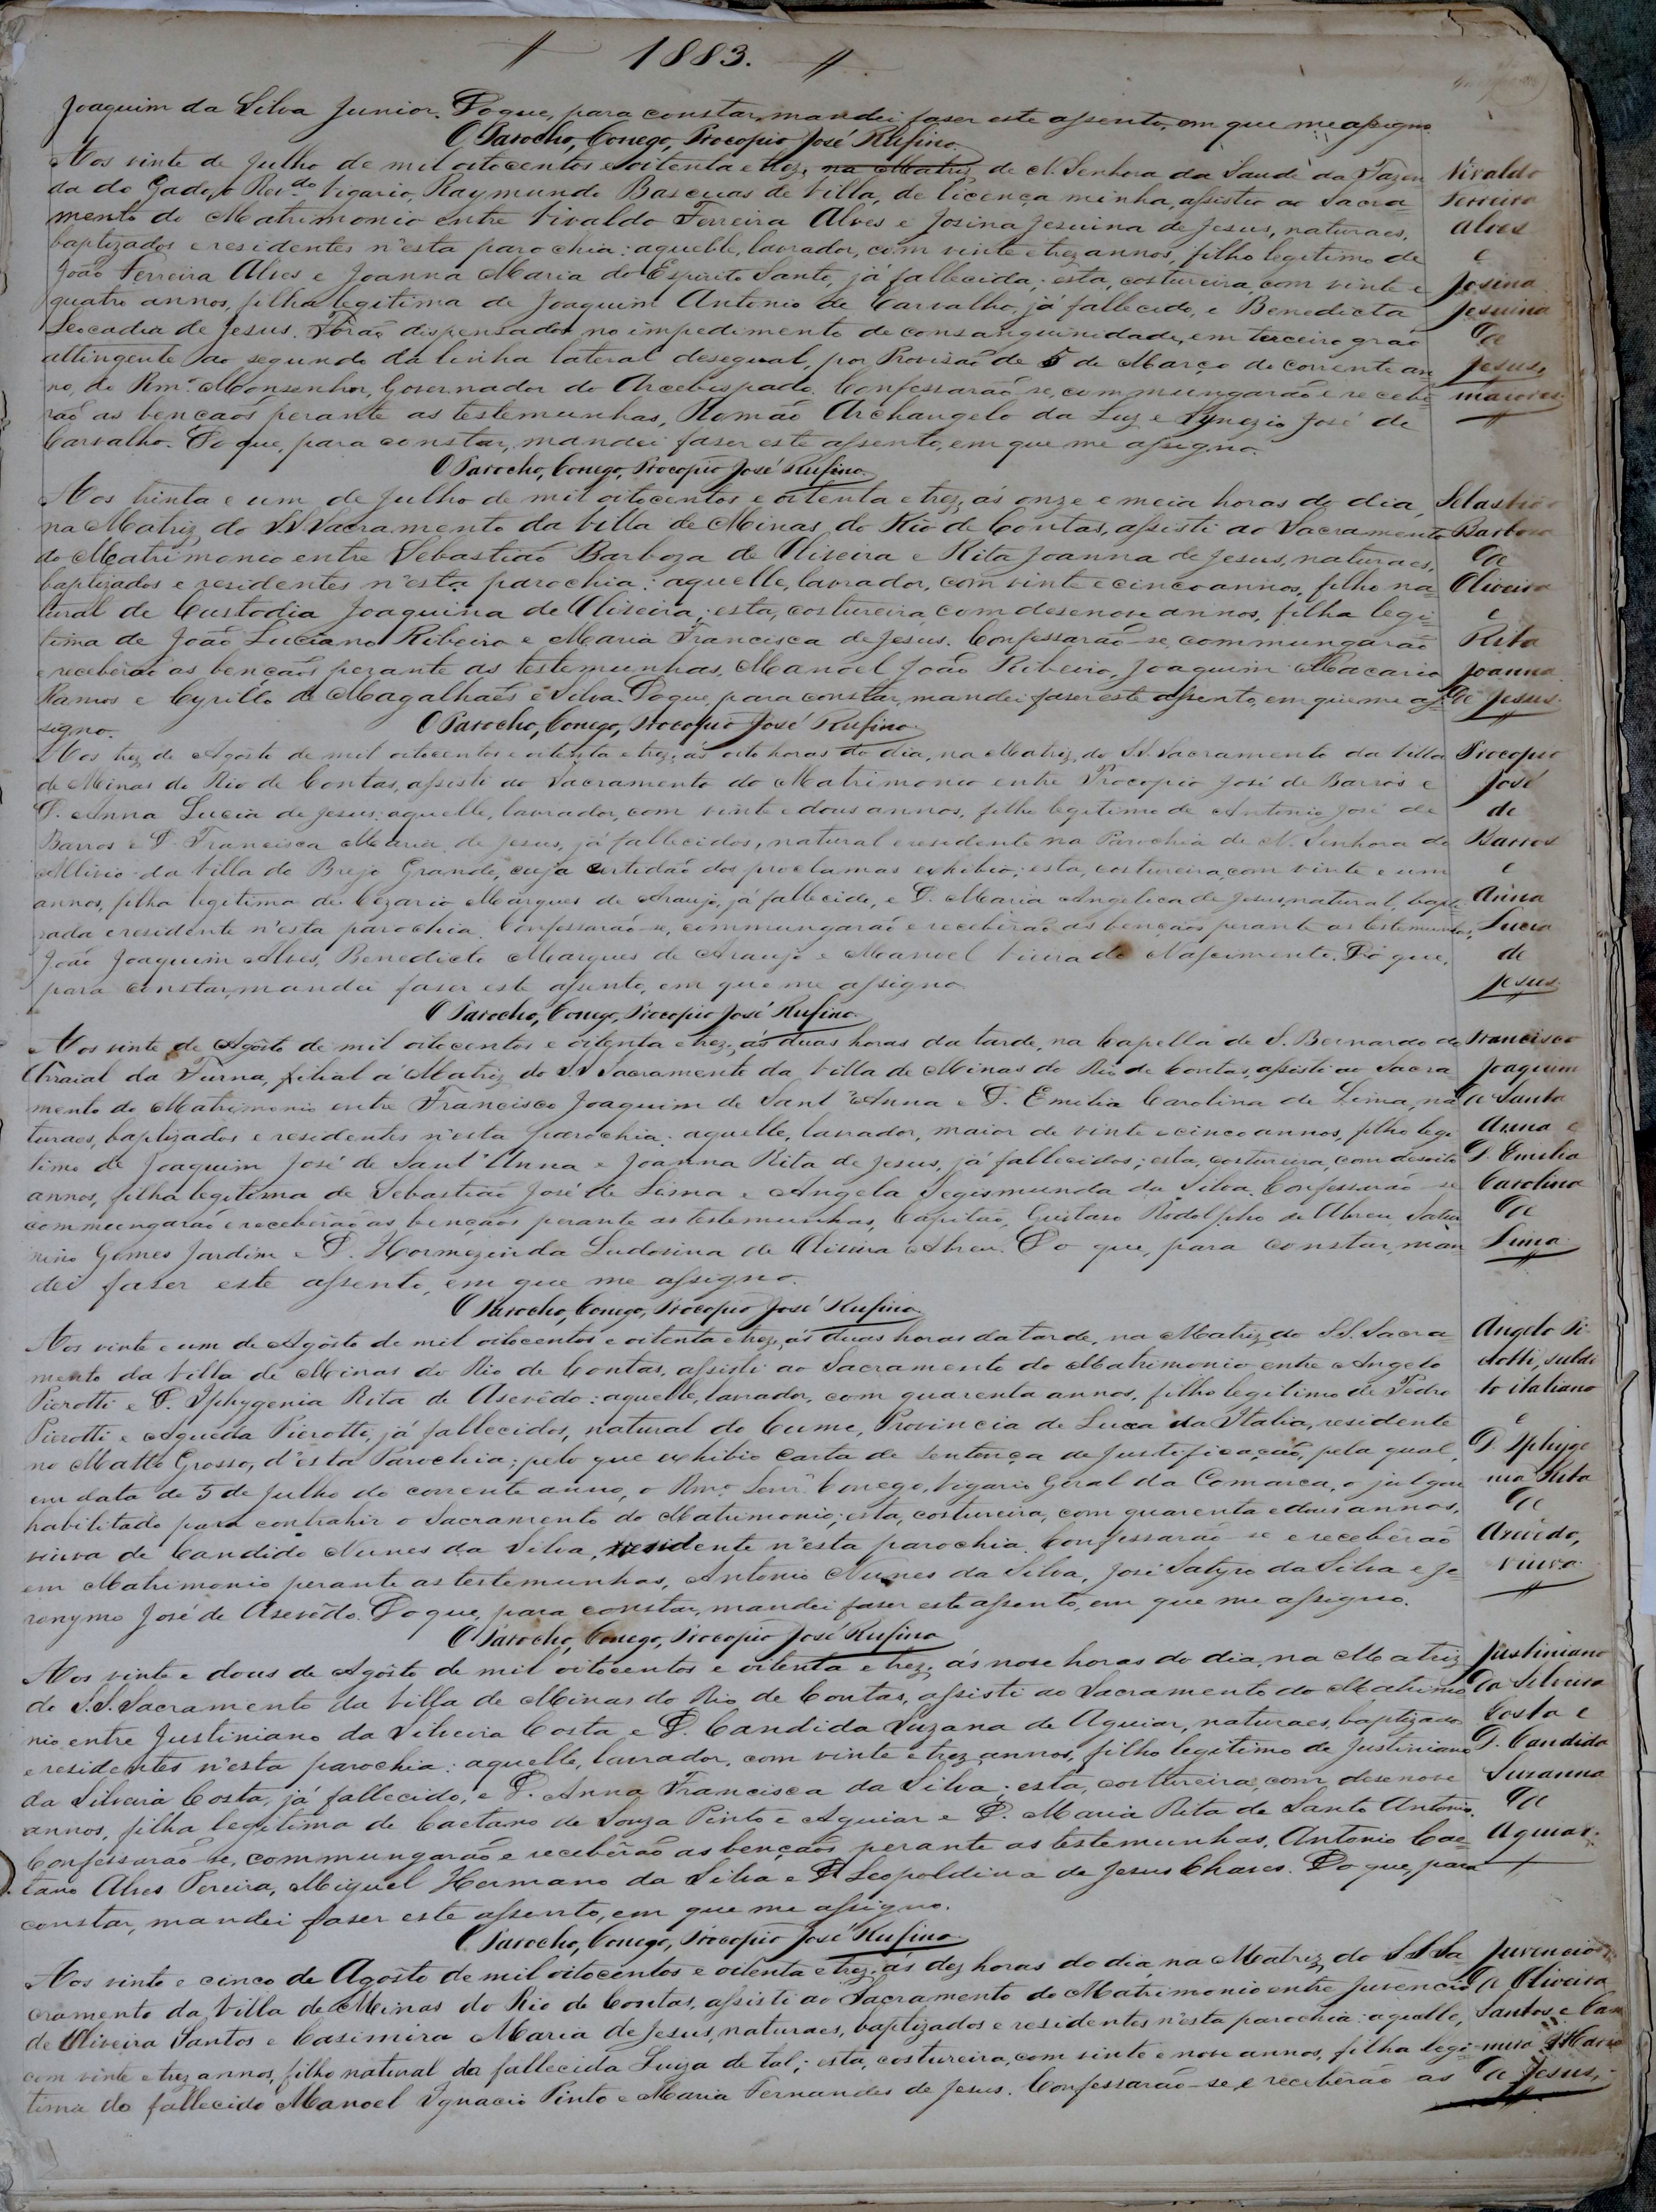 1883.
Joaquim da Silva Junior. Do que, para constar, mandei faser este assento, em que me assigno.
O Parocho, Conego, Procopio José Rufino.
Aos vinte de Julho de mil oitocentos e oitenta e trez, na Matriz de N. Senhora da Saude da Fazen
da do Gado, o Rev.do Vigario, Raymundo Bascuas de Villa, de licença minha, assistio ao Sacra-
mento do Matrimonio entre Vivaldo Ferreira Alves e Josina Jesuina de Jesus, naturaes,
baptizados e residentes n'esta parochia: aquelle, lavrador, com vinte e trez annos, filho legitimo de
João Ferreira Alves e Joanna Maria do Espirito Santo, já fallecida; esta, costureira, com vinte e
quatro annos, filha legitima de Joaquim Antonio de Carvalho, já fallecido, e Benedicta
Leocadia de Jesus. Forão dispensados no impedimento de consanguinidade, em terceiro grao
attingente ao segundo da linha lateral desegual, por Provisão de 5 de Março do corrente an-
no, do Rm.º Monsenhor, Governador do Arcebispado. Confessarão-se, commungarão e recebe-
rão as bençaõs perante as testemunhas, Romão Archangelo da Luz e Ignezio José de
Carvalho. Do que, para constar, mandei faser este assento, em que me assigno.
O Parocho, Conego, Procopio José Rufino.
Vivaldo
Ferreira
Alves
e
Josina
Jesuina
de
Jesus,
maiores
Aos trinta e um de Julho de mil oitocentos e oitenta e trez, ás onze e meia horas do dia,
na Matriz do S.S. Sacramento da Villa de Minas do Rio de Contas, assisti ao Sacramento
do Matrimonio entre Sebastião Barboza de Oliveira e Rita Joanna de Jesus, naturaes,
baptizados e residentes n'esta parochia: aquelle, lavrador, com vinte e cinco annos, filho na-
tural de Custodia Joaquina de Oliveira; esta, costureira, com desenove annos, filha legi-
tima de João Luciano Ribeiro e Maria Francisca de Jesus. Confessarão-se, commungarão
e receberão as bençaõs perante as testemunhas, Manoel João Ribeiro, Joaquim Macario
Ramos e Cyrillo de Magalhaẽs e Silva. Do que, para constar, mandei faser este assento, em que me as-
signo.
O Parocho, Conego, Procopio José Rufino.
Sebastião
Barbosa
de
Oliveira
e
Rita
Joanna
de Jesus.
Aos trez de Agosto de mil oitocentos e oitenta e trez, ás oito horas do dia, na Matriz do S.S. Sacramento da Villa
de Minas do Rio de Contas, assisti ao Sacramento do Matrimonio entre Procopio José de Barros e
D. Anna Lucia de Jesus: aquelle, lavrador, com vinte e dous annos, filho legitimo de Antonio José de
Barros e D. Francisca Maria de Jesus, já fallecidos, natural e residente na Parochia de N. Senhora do
Allivio da Villa do Brejo Grande, cuja certidão dos proclamas exhibio; esta, costureira, com vinte e um
annos, filha legitima de Cezario Marques de Araujo, já fallecido, e D. Maria Angelica de Jesus, natural, bapti-
zada e residente n'esta parochia. Confessarão-se, commungarão e receberão as bençaõs perante as testemunhas,
João Joaquim Alves, Benedicto Marques de Araujo e Manoel Vieira do Nascimento. Do que,
para constar, mandei faser este assento, em que me assigno.
O Parocho, Conego, Procopio José Rufino.
Procopio
José
de
Barros
e
Anna
Lucia
de
Jesus.
Aos vinte de Agosto de mil oitocentos e oitenta e trez, ás duas horas da tarde, na Capella de S. Bernardo do
Arraial da Furna, filial á Matriz do S.S. Sacramento da Villa de Minas do Rio de Contas, assisti ao Sacra-
mento do Matrimonio entre Francisco Joaquim de Sant'Anna e D. Emilia Carolina de Lima, na-
turaes, baptizados e residentes n'esta parochia: aquelle, lavrador, maior de vinte e cinco annos, filho legi-
timo de Joaquim José de Sant'Anna e Joanna Rita de Jesus, já fallecidos; esta, costureira, com desoito
annos, filha legitima de Sebastião José de Lima e Angela Segismunda da Silva. Confessarão-se
commungarão e receberão as bençaõs perante as testemunhas, Capitão, Gustavo Rodolpho de Abreu, Satur-
nino Gomes Jardim e D. Hormezinda Ludosina de Oliveira Abreu. Do que, para constar, man
dei faser este assento, em que me assigno.
O Parocho, Conego, Procopio José Rufino.
Francisco
Joaquim
de Santa
Anna e
D. Emilia
Carolina
de
Lima.
Aos vinte e um de Agosto de mil oitocentos e oitenta e trez, ás duas horas da tarde, na Matriz do S.S. Sacra
mento da Villa de Minas do Rio de Contas, assisti ao Sacramento do Matrimonio entre Angelo
Pierotti e D. Iphygenia Rita de Asevêdo: aquelle, lavrador, com quarenta annos, filho legitimo de Pedro
Pierotti e Agueda Pierotti, já fallecidos, natural do Cume, Provincia de Luca da Italia, residente
no Matto Grosso, d'esta Parochia; pelo que exhibio Carta de Sentença de Justificação, pela qual,
em data de 5 de Julho do corrente anno, o Rm.º Senr. Conego, Vigario Geral da Comarca, o julgou
habilitado para contrahir o Sacramento do Matrimonio; esta, costureira, com quarenta e dous annos,
viuva de Candido Nunes da Silva, residente n'esta parochia. Confessarão-se e receberão
em Matrimonio perante as testemunhas, Antonio Nunes da Silva, José Satyro da Silva e Je-
ronymo José de Asevêdo. Do que, para constar, mandei faser este assento, em que me assigno.
O Parocho, Conego, Procopio José Rufino
Angelo Pi-
erotti, subdi
to italiano
e
D. Iphyge
nia Rita
de
Azevêdo,
viuva.
Aos vinte e dous de Agosto de mil oitocentos e oitenta e trez, ás nove horas do dia, na Matriz
do S.S. Sacramento da Villa de Minas do Rio de Contas, assisti ao Sacramento do Matrimo
nio entre Justiniano da Silveira Costa e D. Candida Suzana de Aguiar, naturaes, baptizados
e residentes n'esta parochia: aquelle, lavrador, com vinte e trez annos, filho legitimo de Justiniano
da Silveira Costa, já fallecido, e D. Anna Francisca da Silva; esta, costureira, com desenove
annos, filha legitima de Caetano de Souza Pinto e Aguiar e D. Maria Rita de Santo Antonio.
Confessarão-se, commungarão e receberão as bençaõs perante as testemunhas, Antonio Cae-
tano Alves Pereira, Miguel Hermano da Silva e D. Leopoldina de Jesus Chaves. Do que, para
constar, mandei faser este assento, em que me assigno.
O Parocho, Conego, Procopio José Rufino.
Justiniano
da Silveira
Costa e
D. Candida
Suzanna
de
Aguiar.
Aos vinte e cinco de Agosto de mil oitocentos e oitenta e trez, ás dez horas do dia, na Matriz do S.S. Sa
cramento da Villa de Minas do Rio de Contas, assisti ao Sacramento do Matrimonio entre Juvencio
de Oliveira Santos e Casimira Maria de Jesus, naturaes, baptizados e residentes n'esta parochia: aquelle,
com vinte e trez annos, filho natural da fallecida Luiza de tal; esta, costureira, com vinte e nove annos, filha legi-
tima do fallecido Manoel Ignacio Pinto e Maria Fernandes de Jesus. Confessarão-se, e receberão as
Juvencio
de Oliveira
Santos e Casi
mira Maria
de Jesus.